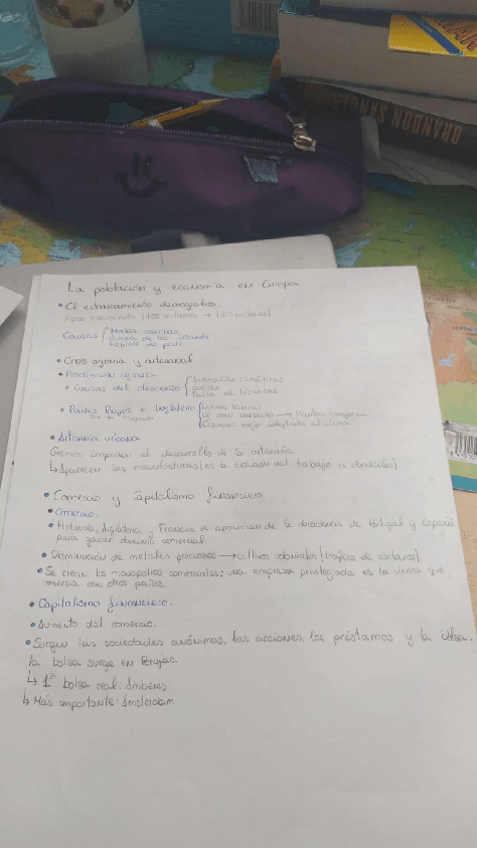 BRANDON SAN
La población y economía en Europa
• El estancamiento demográfico.
Poco crecimiento (100 millones → 120 millones)
Causas Malas cosechas
Guerra de los 30 años
Rebrote de peste
• Crisis agraria y artesanal
• Producción agraria
• Causas del descenso
Guerras
Falta de
• Países Bajos e Inglaterra
Especies mejor adaptadas al clima
• Artesanía urbana
Gremios impiden el desarrollo de la artesanía
↳ Aparecen las manufacturas (es a división del trabajo a domicilio).
• Comercio y Capitalismo financiero
• Comercio:
• Holanda, Inglaterra y Francia se aprovechan de la decadencia de Portugal y España
para ganar dominio comercial
• Disminución de metales preciosos → cultivos coloniales (tráfico de esclavos)
• Se crean los monopolios comerciales: una empresa privilegiada es la única que
comercia con otros países.
• Capitalismo financiero:
• Aumento del comercio.
• Surgen las sociedades anónimas, las acciones, los préstamos y la bolsa.
La bolsa surge en Brujas.
↳ 1ª bolsa real: Amberes
↳ Más importante: Amsterdam